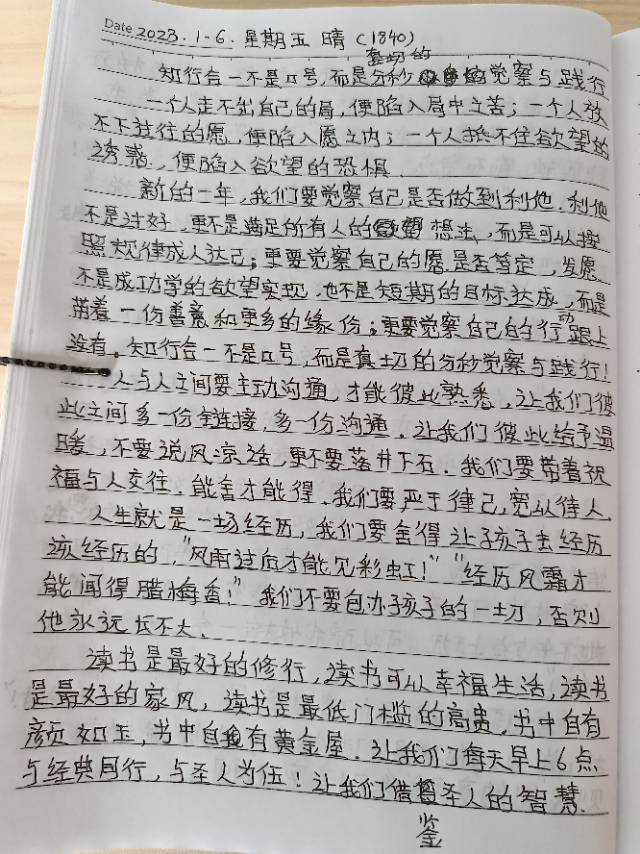 Date 2023.1-6. 星期五 晴 (1840)
真切的
知行合一不是口号,而是分秒觉察与践行
一个人走不出自己的局,便陷入局中之苦;一个人放
不下过往的愿,便陷入愿之内;一个人抵不住欲望的
诱惑,便陷入欲望的恐惧.
新的一年,我们要觉察自己是否做到利他.利他
不是讨好,更不是满足所有人的想法,而是可以按
照规律成人达己;更要觉察自己的愿是否笃定,发愿
不是成功学的欲望实现,也不是短期的目标达成,而是
带着一份善意和更多的缘份;更要觉察自己的行动跟上
没有.知行合一不是口号,而是真切的分秒觉察与践行!
人与人之间要主动沟通,才能彼此熟悉,让我们彼
此之间多一份链接,多一份沟通.让我们彼此给予温
暖,不要说风凉话,更不要落井下石.我们要带着祝
福与人交往.能舍才能得.我们要严于律己,宽以待人.
人生就是一场经历,我们要舍得让孩子去经历
该经历的,"风雨过后才能见彩虹!""经历风霜才
能闻得腊梅香!"我们不要包办孩子的一切,否则
他永远长不大.
读书是最好的修行,读书可以幸福生活,读书
是最好的家风,读书是最低门槛的高贵.书中自有
颜如玉,书中自有黄金屋.让我们每天早上6点
与经典同行,与圣人为伍!让我们借圣人的智慧.
鉴